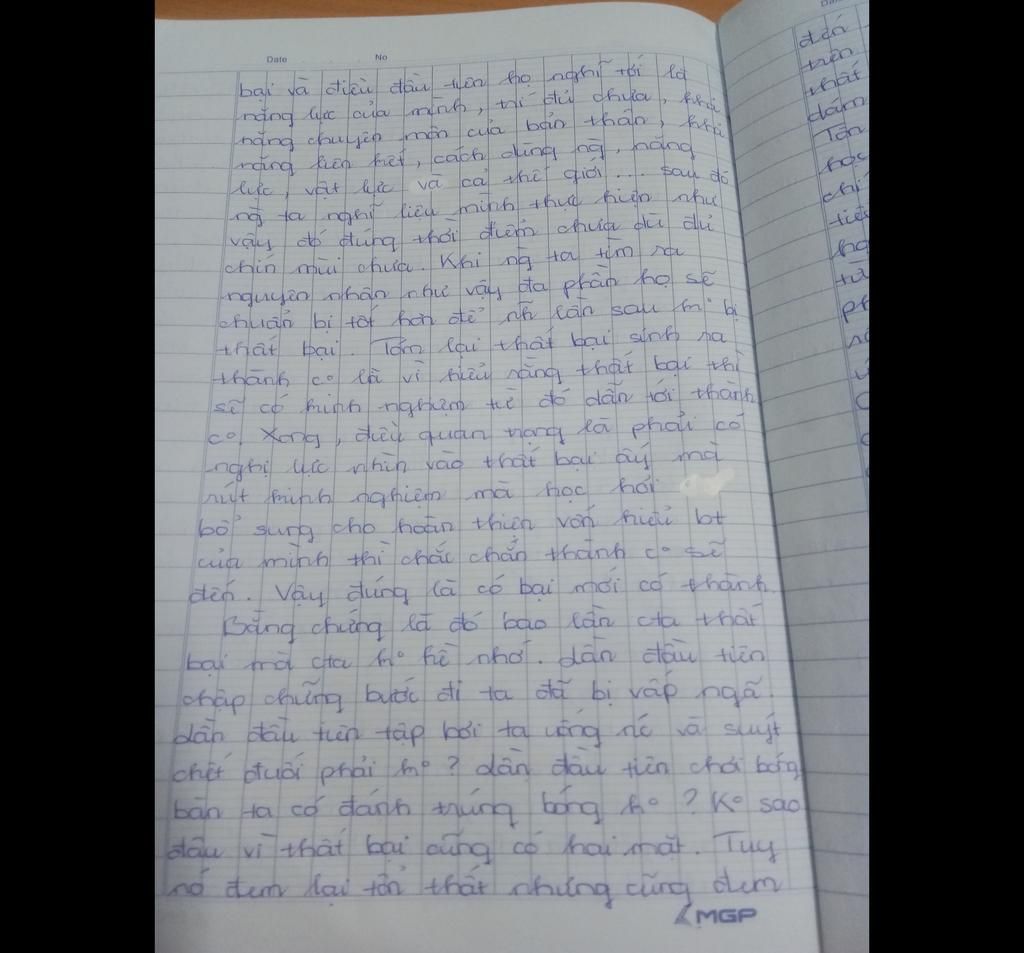 Date No
bại và điều đầu tiên họ nghĩ tới là
năng lực của mình, trí đủ chưa, khả
năng chuyên môn của bản thân, khả
năng liên kết, cách dùng ng, năng
lực, vật lực và cả thế giới .... sau đó
ng ta nghĩ liệu mình thực hiện như
vậy đó đúng thời điểm chưa đủ đủ
chín mùi chưa. Khi ng ta tìm ra
nguyên nhân như vậy đa phần họ sẽ
chuẩn bị tốt hơn để lần sau ko bị
thất bại. Tóm lại thất bại sinh ra
thành co là vì hiểu rằng thất bại thì
sẽ có kinh nghiệm từ đó dẫn tới thành
co. Xong, điều quan trọng là phải có
nghị lực nhìn vào thất bại ấy mà
rút kinh nghiệm mà học hỏi
bổ sung cho hoàn thiện vốn hiểu bt
của mình thì chắc chắn thành co sẽ
đến. Vậy đúng là có bại mới có thành.
Bằng chứng là đó bao lần cta thất
bại mà cta ko hề nhớ. Lần đầu tiên
chập chững bước đi ta đã bị vấp ngã.
Lần đầu tiên tập bơi ta uống nc và suýt
chết đuối phải ko ? Lần đầu tiên chơi bóng
bàn ta có đánh trúng bóng ko ? Ko sao
đâu vì thất bại cũng có hai mặt. Tuy
nó đem lại tổn thất nhưng cũng đem
MGP
trên
thất
dám
Tôn
học
chí